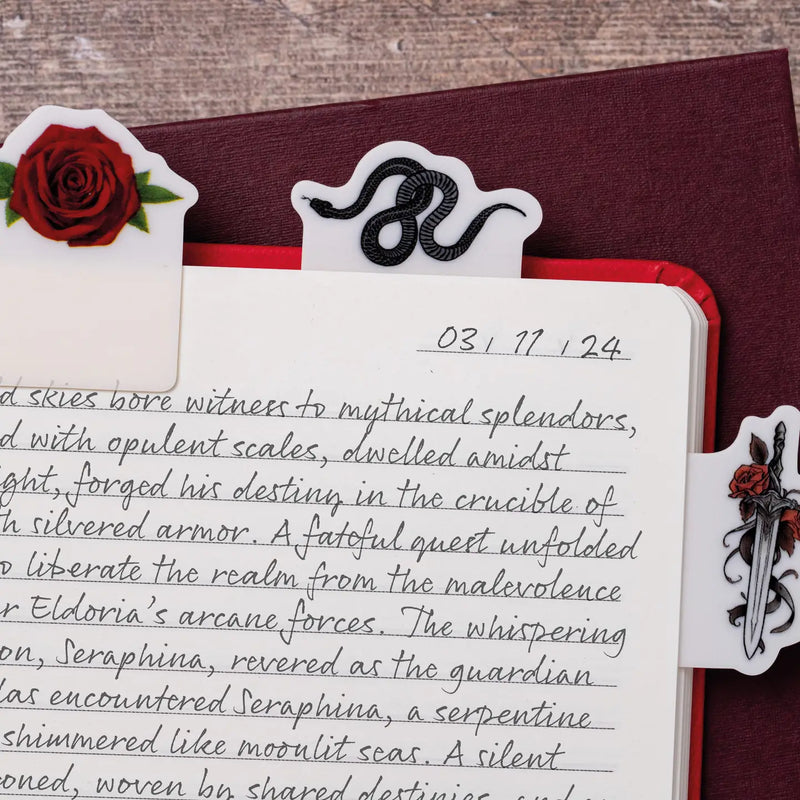 03 / 11 / 24
d skies bore witness to mythical splendors,
d with opulent scales, dwelled amidst
ght, forged his destiny in the crucible of
th silvered armor. A fateful quest unfolded
o liberate the realm from the malevolence
r Eldoria's arcane forces. The whispering
on, Seraphina, revered as the guardian
las encountered Seraphina, a serpentine
shimmered like moonlit seas. A silent
oned, woven by shared destinies, and